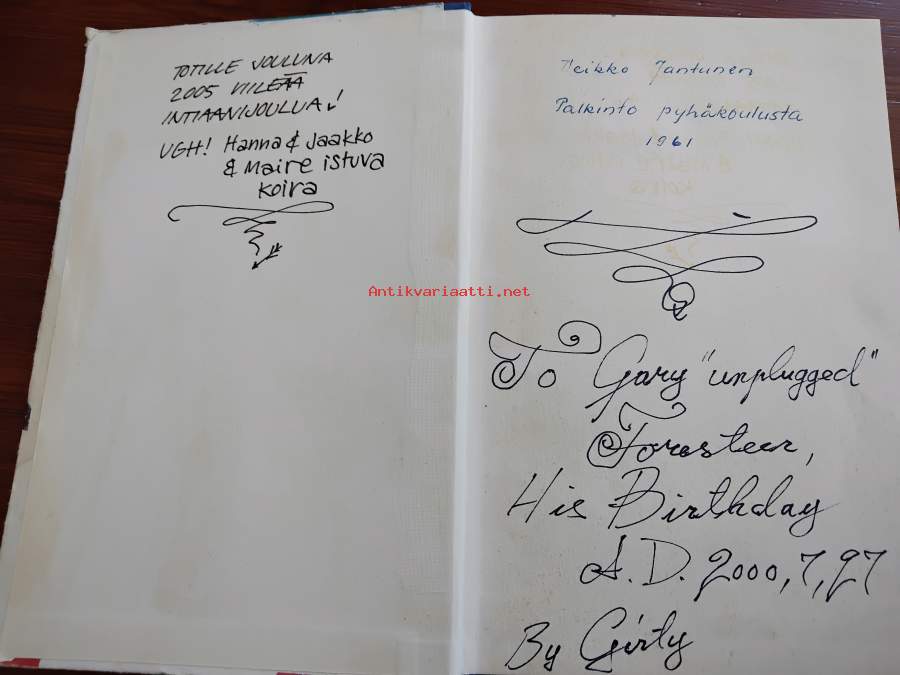 TOTILLE JOULUNA
2005 VIILEÄÄ
INTIAANIJOULUA!
UGH! Hanna & Jaakko
& Maire istuva
koira
Veikko Jantunen
Palkinto pyhäkoulusta
1961
Antikvariaatti.net
To Gary "unplugged"
Forosteer,
His Birthday
A.D. 2000,7,27
By Girty